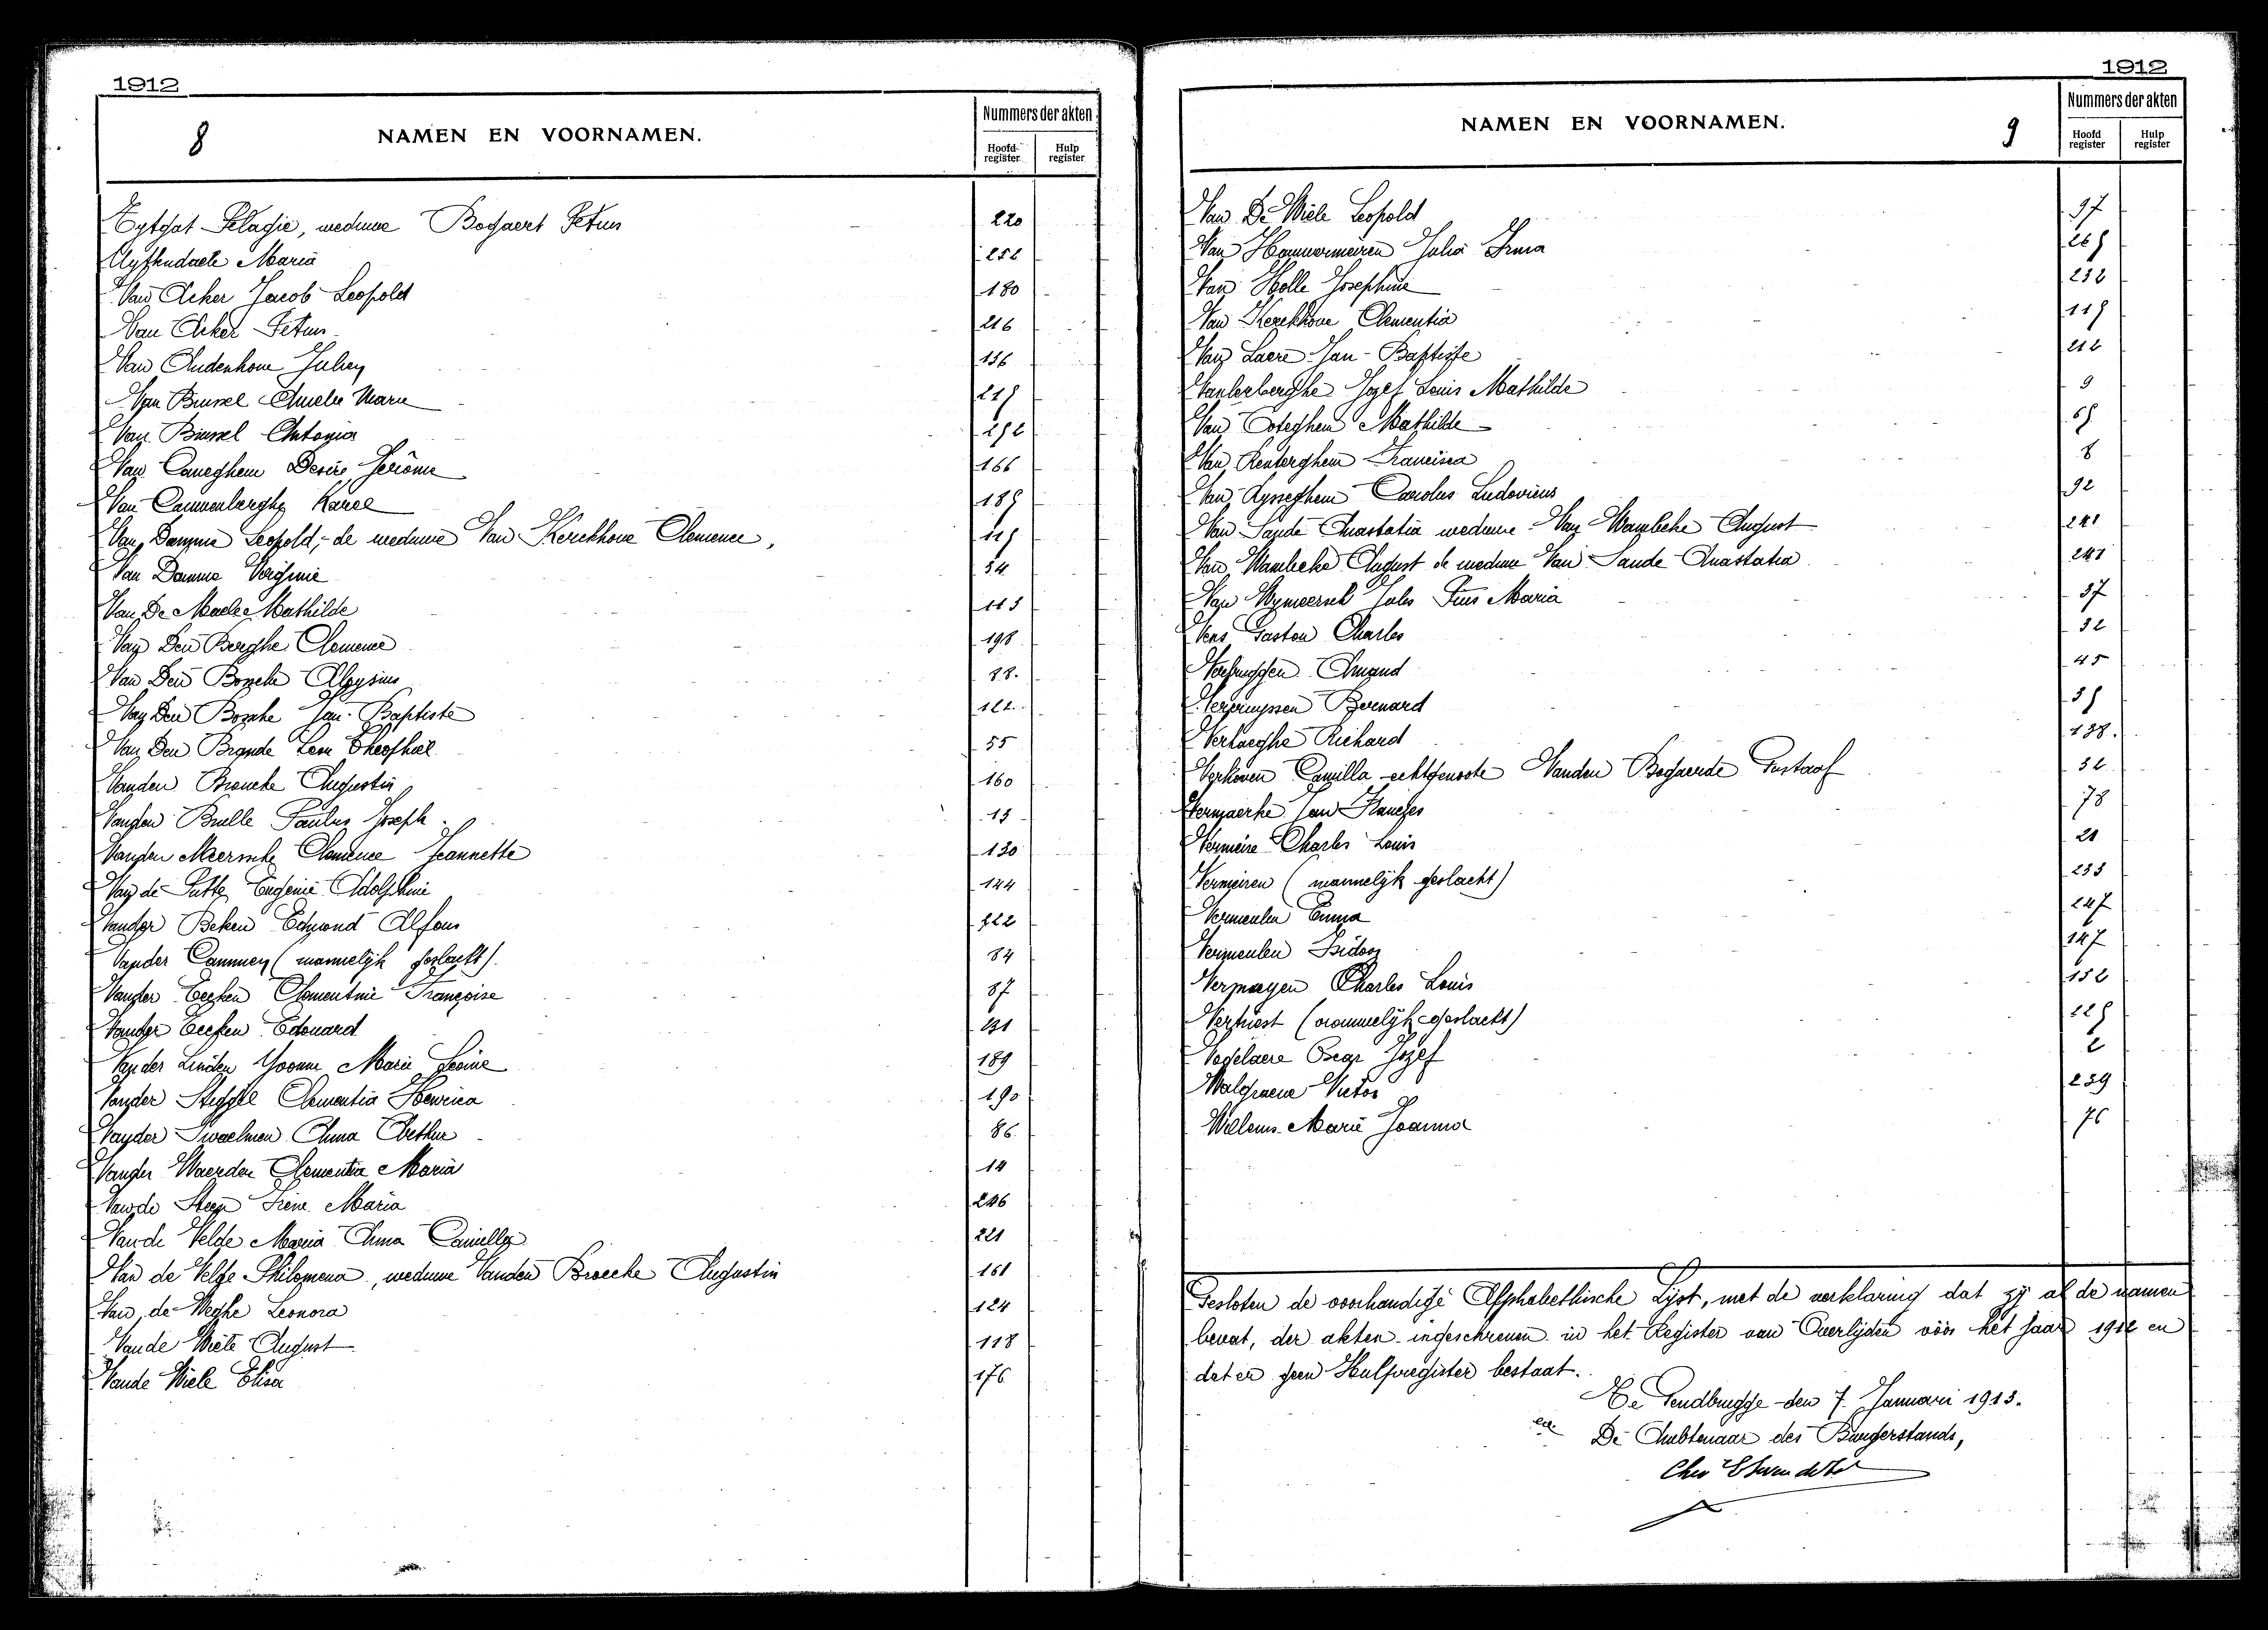 1912
8
NAMEN EN VOORNAMEN.
Nummers der akten
Hoofd-register
Hulp register
Eytgat Pelagie, weduwe Bogaert Petrus 220
Uyttendaele Maria 252
Van Acker Jacob Leopold 180
Van Acker Petrus 216
Van Audenhove Julien 136
Van Brussel Amelie Marie 219
Van Brussel Antonia 292
Van Caneghem Desiré Jérôme 166
Van Cauwenberghe Karel 189
Van Damme Leopold, de weduwe Van Kerckhove Clemence, 119
Van Damme Virginie 34
Van De Maele Mathilde 113
Van Den Berghe Clemence 198
Van Den Bossche Aloysius 88.
Van Den Bossche Jan-Baptiste 122
Van Den Brande Leon Theophiel 55
Vanden Broucke Augustin 160
Vanden Brulle Paulus Joseph 15
Vanden Meersche Clemence Jeannette 130
Van de Putte Eugenie Adolphine 144
Vander Beken Edmond Alfons 222
Vander Cammen (mannelijk geslacht) 84
Vander Eecken Clementine Françoise 87
Vander Eecken Edouard 131
Vander Linden Yvonne Marie Leonie 189
Vander Steggel Clementia Henrica 190
Vander Swaelmen Anna Arthur 86
Vander Waerden Clementia Maria 14
Van de Steen Irène Maria 246
Van de Velde Maria Anna Camilla 221
Van de Velde Philomena, weduwe Vanden Broecke Augustin 161
Van de Weghe Leonora 124
Van de Wiele August 118
Van de Wiele Elisa 176
1912
NAMEN EN VOORNAMEN.
9
Nummers der akten
Hoofd register
Hulp register
Van De Wiele Leopold 97
Van Hauwermeiren Julia Irma 269
Van Holle Josephine 232
Van Kerckhove Clementia 119
Van Laere Jan-Baptiste 212
Vanlerberghe Jozef Louis Mathilde 9
Van Ooteghem Mathilde 69
Van Renterghem Francisca 8
Van Rysseghem Carolus Ludovicus 92
Van Sande Anastatia weduwe Van Wambeke August 241
Van Wambeke August de weduwe Van Sande Anastatia 241
Van Wymeersch Jules Pius Maria 37
Vens Gaston Charles 32
Verbrugghen Amand 45
Vercruyssen Bernard 59
Verhaeghe Richard 138.
Verhoven Camilla echtgenoote Vanden Bogaerde Gustaaf 32
Vermaerke Jan Francies 78
Vermeire Charles Louis 21
Vermeiren (mannelijk geslacht) 233
Vermeulen Emma 247
Vermeulen Isidoor 147
Vermaeyen Charles Louis 152
Verhiest (vrouwelijk geslacht) 229
Vogelaere Oscar Jozef 2
Walgraeve Victor 239
Willems Marie Joanna 76
Gesloten de voorhandige Alphabethische Lijst, met de verklaring dat zij al de namen
bevat, der akten ingeschreven in het Register van Overlijden vóór het jaar 1912 en
dat er geen Hulpregister bestaat.
Te Gendbrugge den 7 Januari 1913.
De Ambtenaar des Burgerstands,